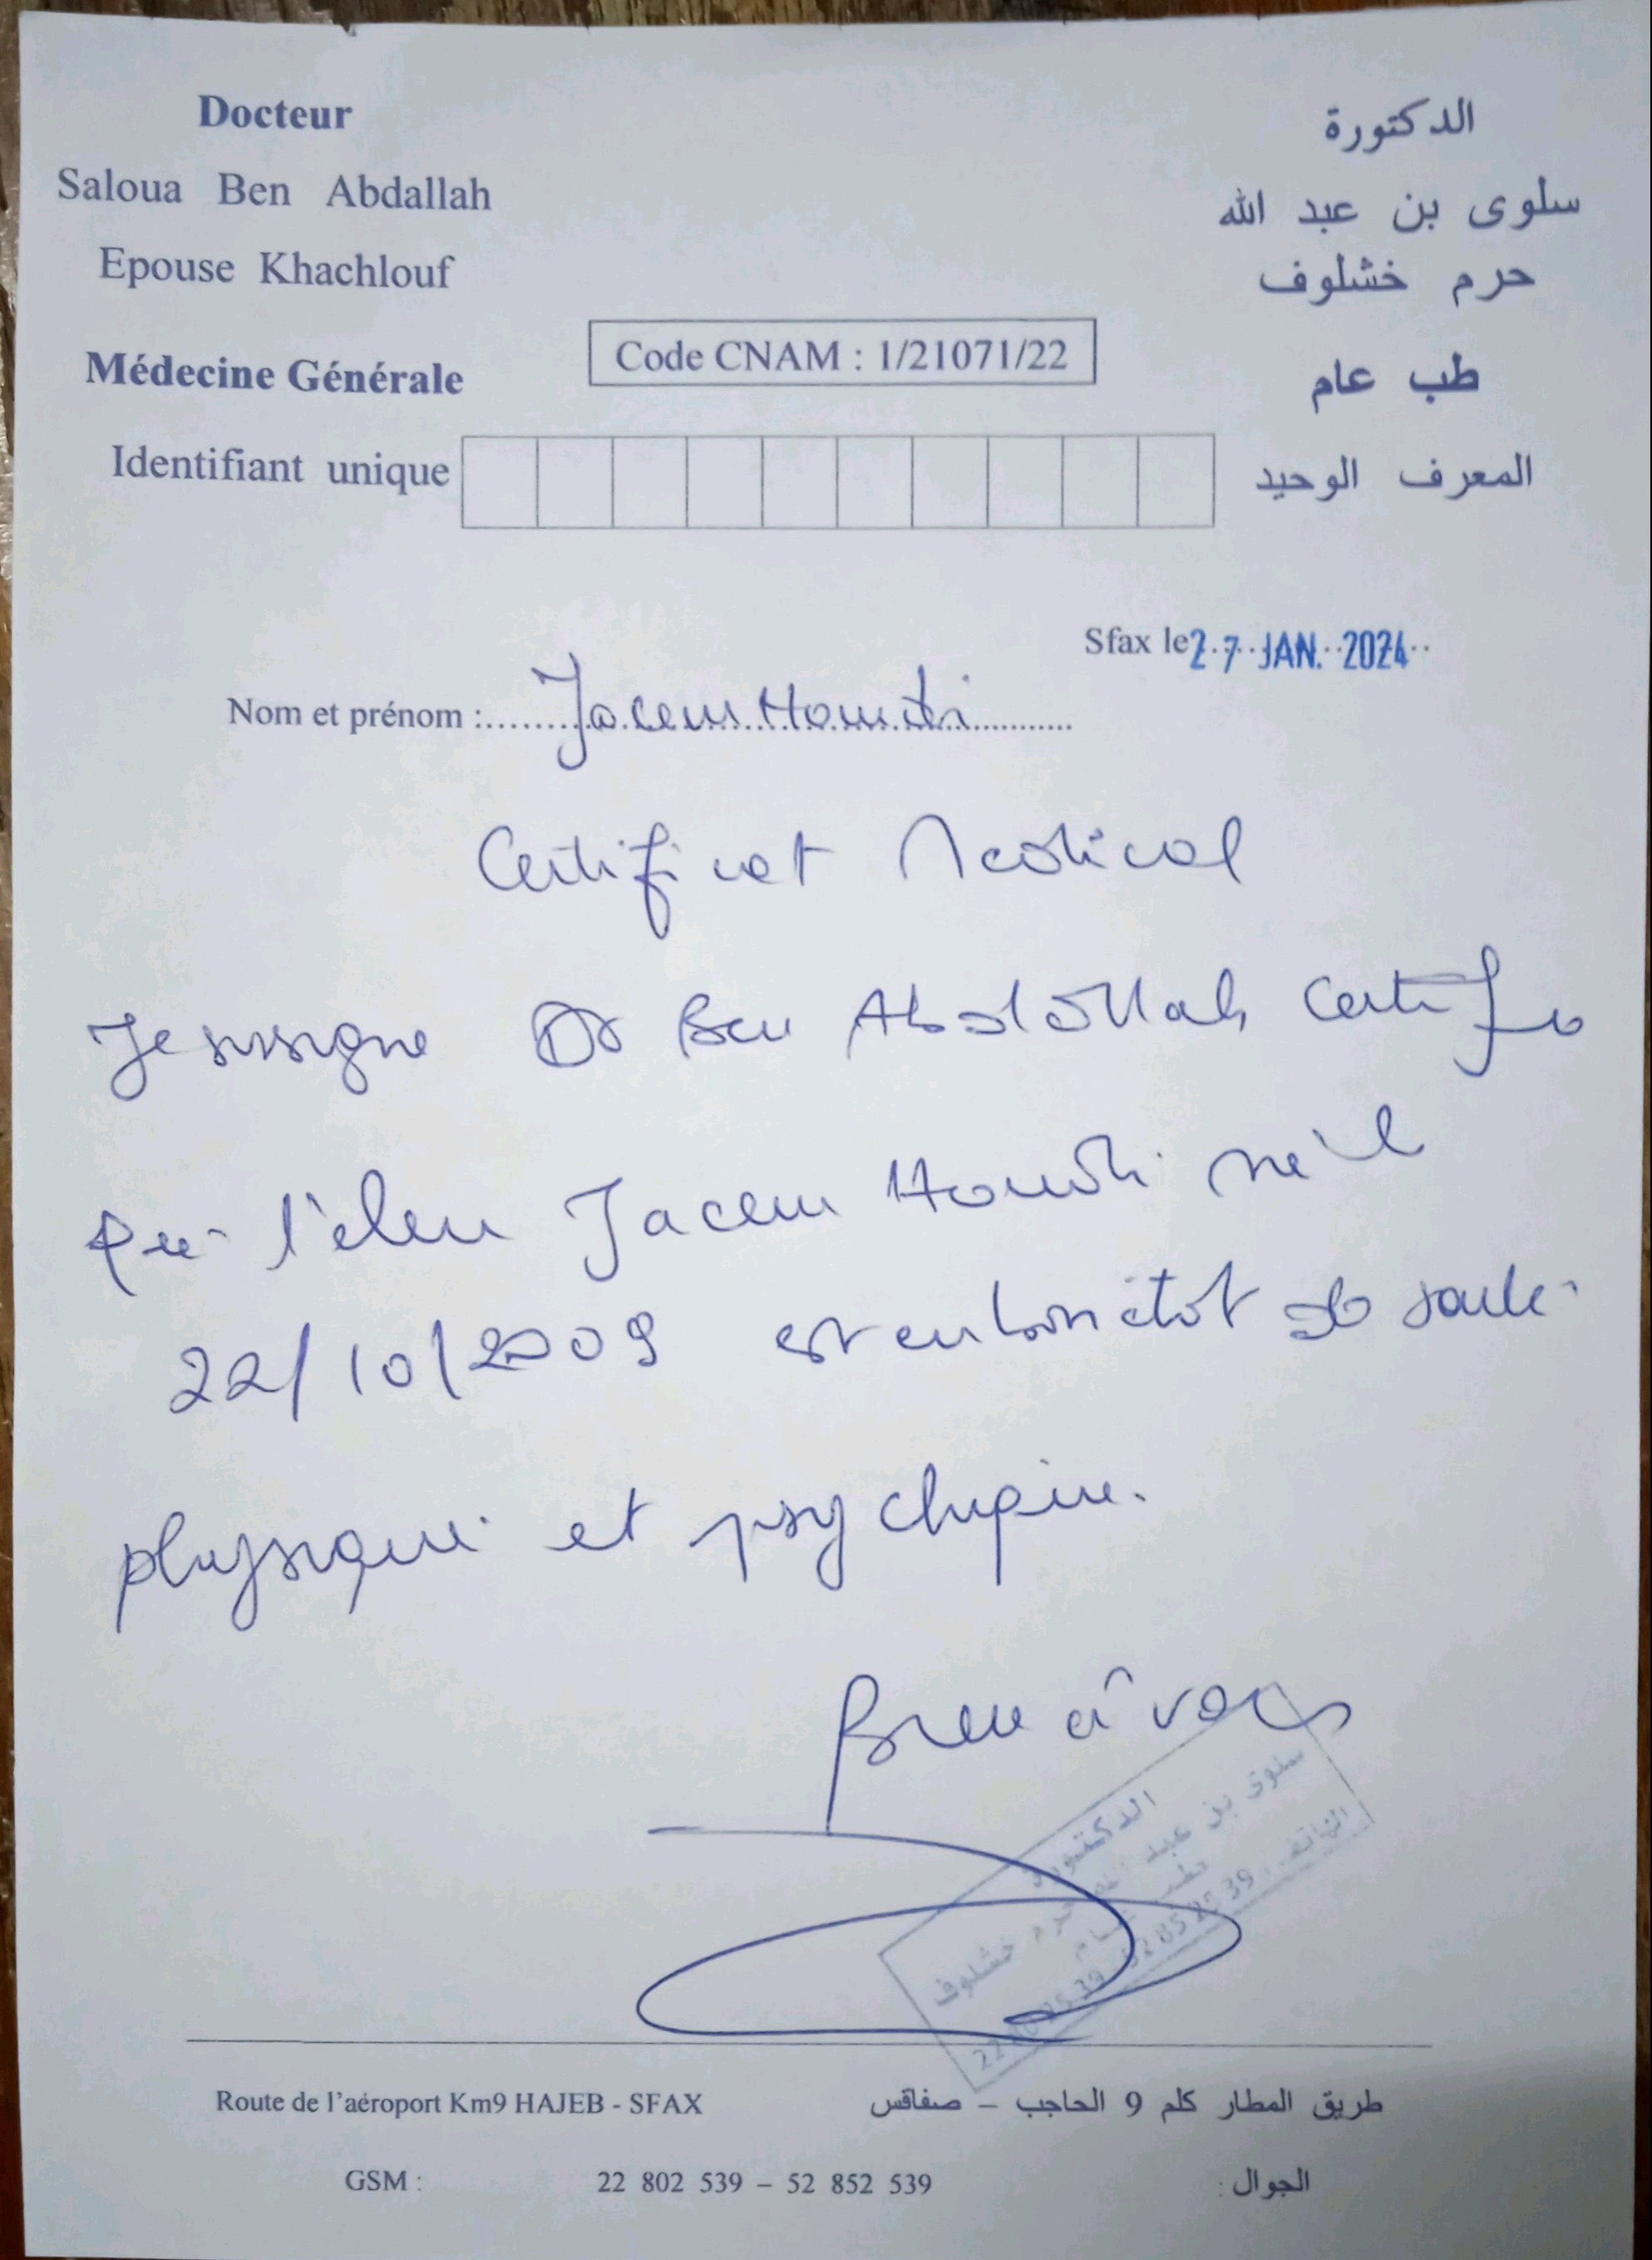 Docteur
Saloua Ben Abdallah
Epouse Khachlouf
Médecine Générale
الدكتورة
سلوى بن عبد الله
حرم خشلوف
طب عام
Code CNAM : 1/21071/22
Identifiant unique
المعرف الوحيد
Sfax le 27 JAN. 2024
Nom et prénom : Jacem
Certificat Medical
Je sousigne Dr Ben Abdallah certifie
que l'eleve Jacem né le
22/10/2009 est en bon état de santé
physique et psychique.
الدكتورة
سلوى بن عبد الله حرم خشلوف
طب عام
الهاتف
Route de l'aéroport Km9 HAJEB - SFAX
طريق المطار كلم 9 الحاجب – صفاقس
GSM : 22 802 539 – 52 852 539 الجوال :